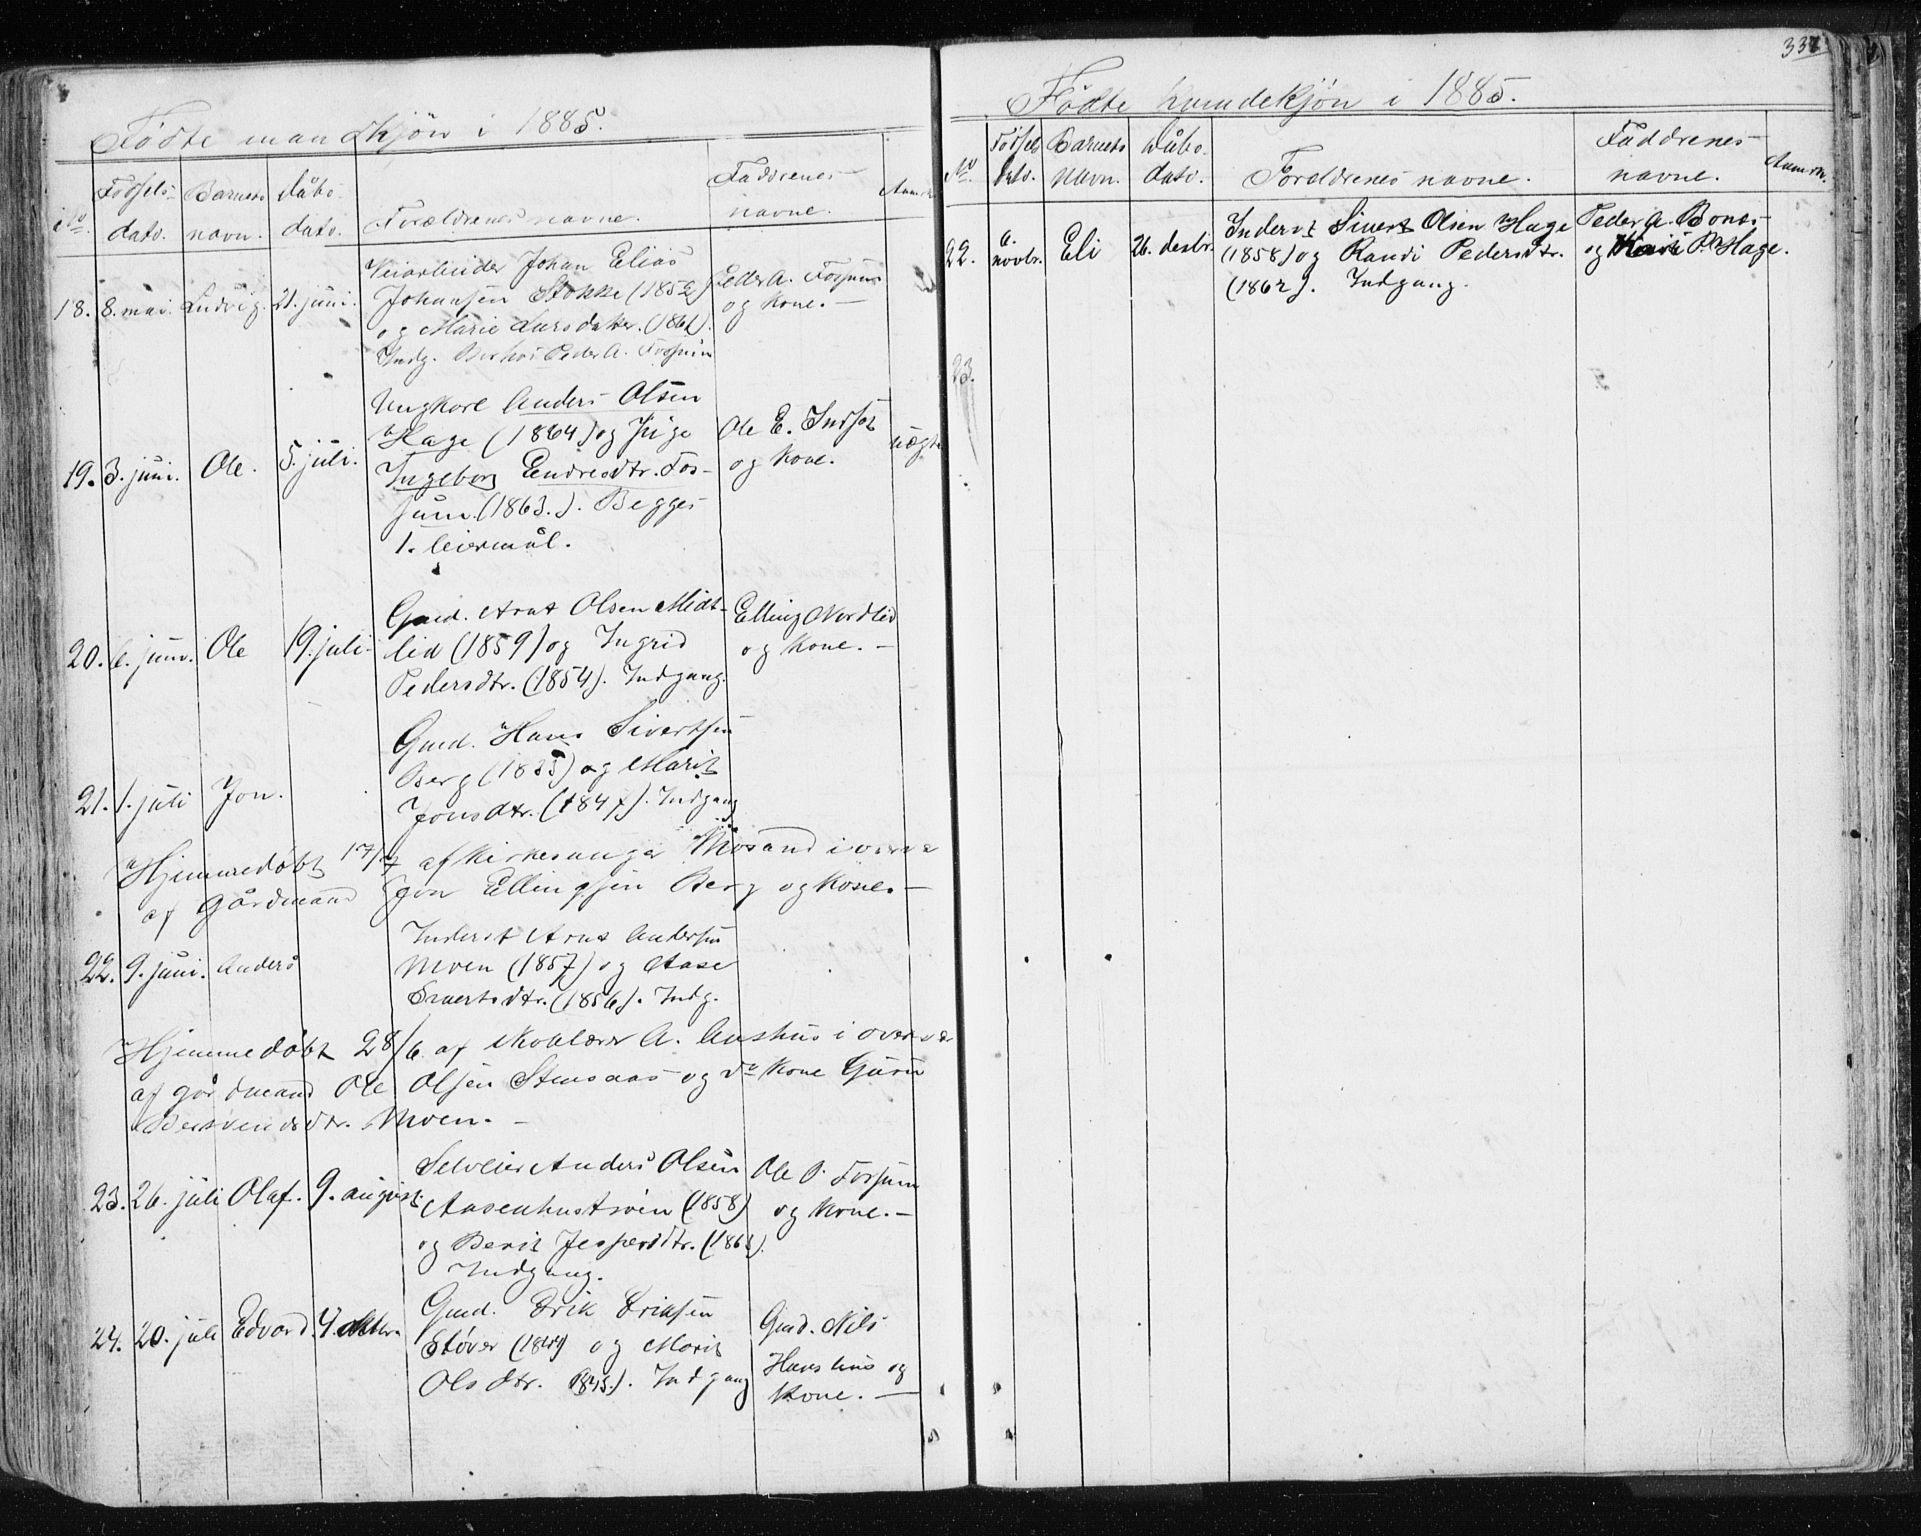 Fødte mandkjön i 1885.
No. Fødsels- dato. Barnets navn. Dåbs- dato. Forældrenes navne. Faddrenes navne. Anm.
18. 8. mai. Ludvig. 21. juni. Veiarbeider Johan Elias
Johansen Stokke (1859)
og Marie Larsdatter. (1861).
Indg. Peder A. Fossum
Peder A. Fossum
og kone. —
19. 3. juni. Ole. 5. juli. Ungkarl Anders Olsen
Hage (1864) og Pige
Ingeborg Endresdtr. Fos-
sum. (1863.). Begges
1. leiermål.
Ole E. Indset
og kone.
uægte
20. 6. juni. Ole 19. juli. Gmd. Arnt Olsen Midt-
lid (1859) og Ingrid
Pedersdtr. (1854). Indgang.
Elling Nordlid
og kone. —
21. 1. juli Jon. Gmd. Hans Sivertsen
Berg (1835) og Marit
Jonsdtr. (1847). Indgang
Hjemmedøbt 17/7 af kirkesanger Mosand i overvær
af Gårdmand Jon Ellingsen Berg og kone. —
22. 9. juni. Anders Inderst Arnt Andersen
Moen (1857) og Aase
Sivertsdtr. (1856). Indg.
Hjemmedøbt 28/6 af skolelærer A. Aushus i overvær
af gårdmand Ole Olsen Stensaas og do kone Guru
Bersvendsdtr. Moen. —
23. 26. juli Olaf. 9. august. Selveier Anders Olsen
Aasenhustrøen (1858)
og Berit Jespersdtr. (1863).
Indgang.
Ole P. Fossum
og kone. —
24. 20. juli Edvard. 4. oktbr. Gmd. Erik Eriksen
Støver (1844) og Marit
Olsdtr. (1845). Indgang
Gmd. Nils
Hanshus og
kone. —
337
Fødte kvindekjön i 1885.
No. Fødsels dato. Barnets navn. Dåbs- dato. Forældrenes navne. Faddrenes navne. Anm.
22. 6. novbr. Eli 26. desbr. Inderst Sivert Olsen Hage
(1858) og Randi Pedersdtr.
(1862). Indgang.
Peder A. Bones
og Marit P. Hage.
23.